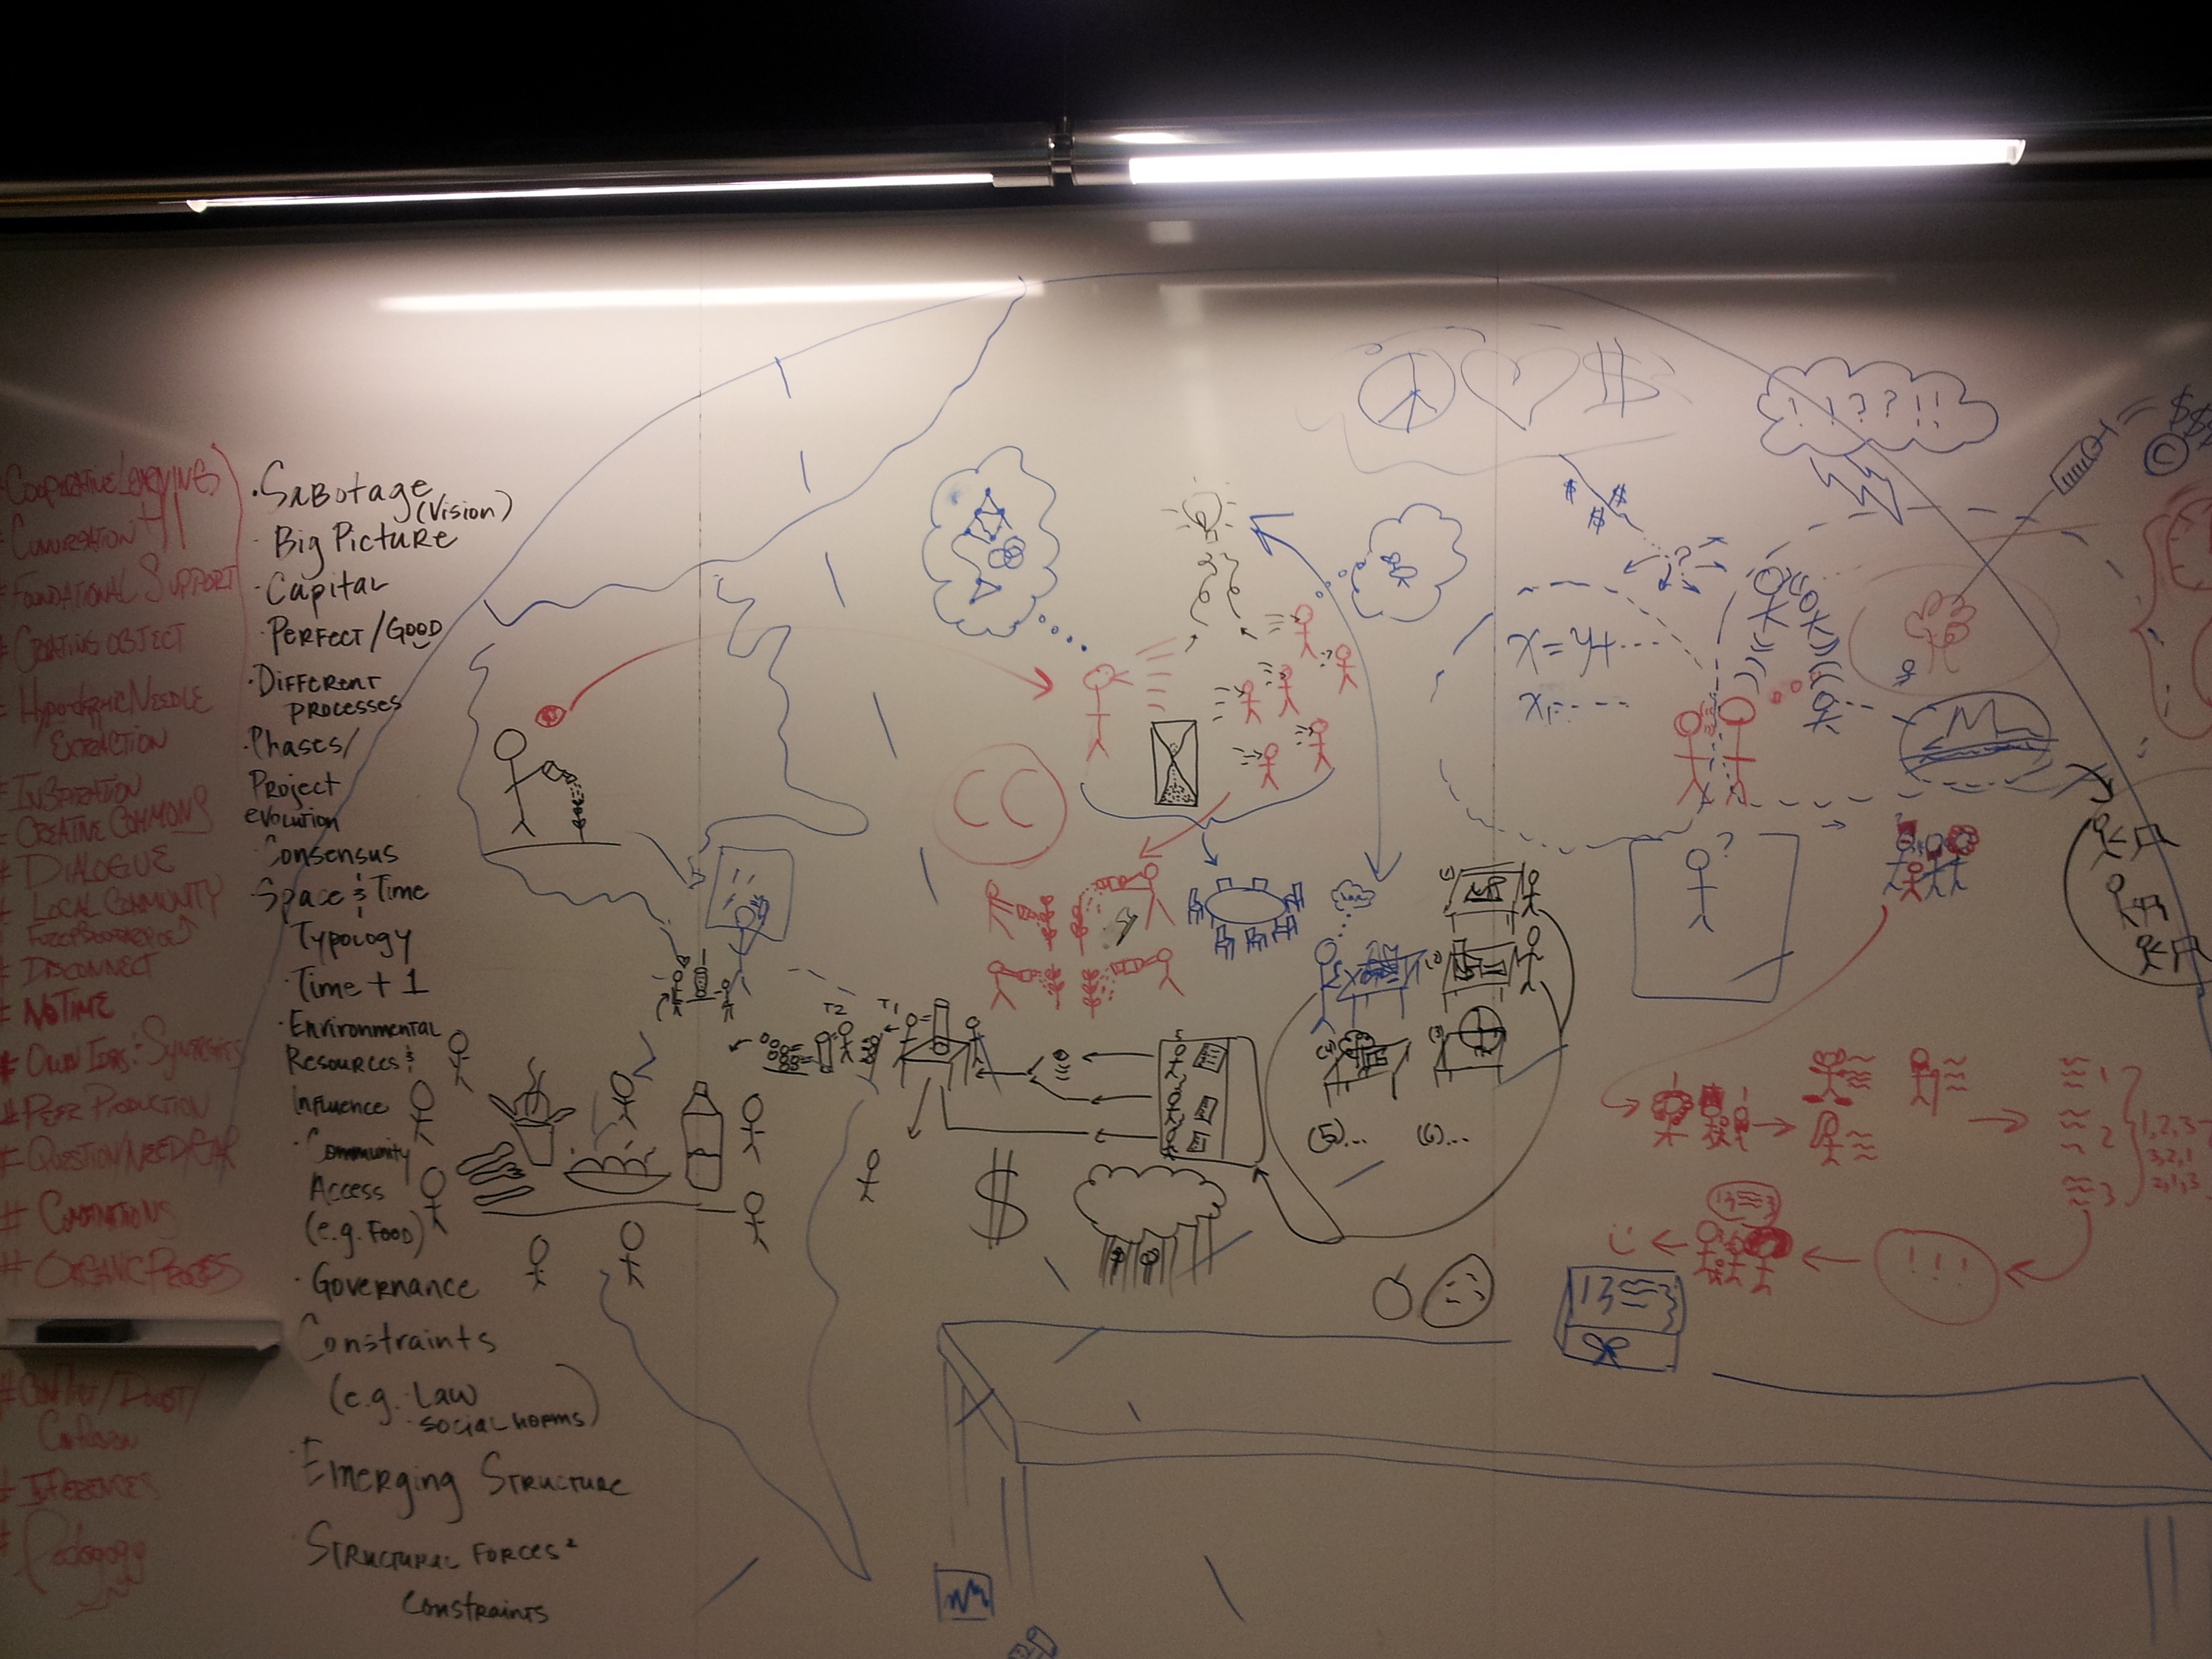 # COOPERATIVE LEARNINGS
# CONVERSATION
# FOUNDATIONAL SUPPORT
# CREATING OBJECT
# HYPODERMIC NEEDLE
EXTRACTION
# INSPIRATION
# CREATIVE COMMONS
# DIALOGUE
# LOCAL COMMUNITY
# DISCONNECT
# NO TIME
# OWN IDEAS: SYNERGIES
# PEER PRODUCTION
# QUESTION/NEED/GAP
# COMBINATIONS
# ORGANIC PROCESS
# CONFLICT/DOUBT/
CONFUSION
# INFERENCES
# Pedagogy
· SABOTAGE
(Vision)
· Big PICTURE
· Capital
· PERFECT/GOOD
· DIFFERENT
PROCESSES
· Phases/
Project
evolution
· Consensus
· Space & Time
Typology
· Time + 1
· Environmental
Resources &
Influence
· Community
Access
(e.g. FOOD)
· Governance
Constraints
(e.g. LAW
· SOCIAL NORMS)
· Emerging STRUCTURE
· STRUCTURAL FORCES &
Constraints
$
! ! ? ? ! !
$$$
©
$ $ $
?
X = Y + ---
CC
?
T2 T1
(1)
(2)
(4) (3)
(5)... (6)...
$
1
2
3
1,2,3
3,2,1
2,1,3
! ! !
13
13